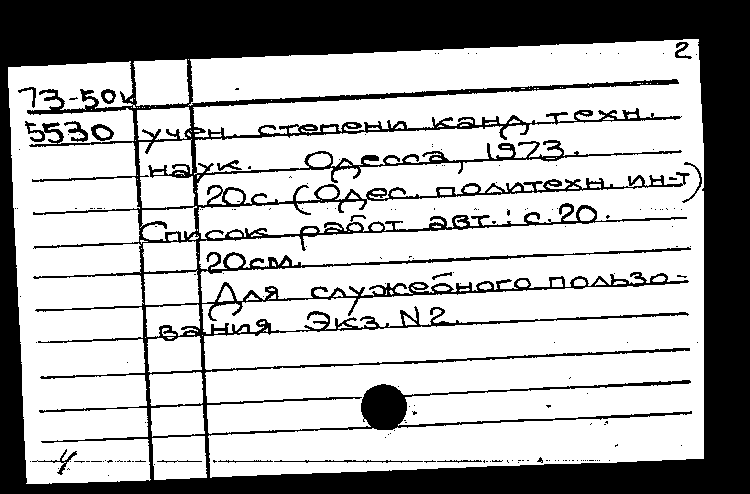 2
73-50к
5530 учен. степени канд. техн.
наук. Одесса, 1973.
20с. (Одес. политехн. ин-т)
Список работ авт.: с.20.
20см.
Для служебного пользо-
вания Экз. N2.